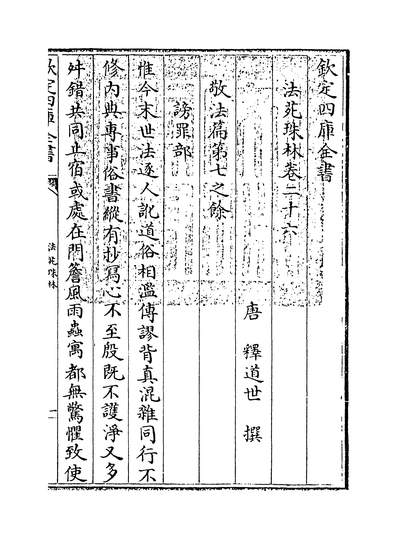 欽定四庫全書
法苑珠林卷二十六
唐 釋道世 撰
敬法篇第七之餘
謗罪部
惟今末世法逐人訛道俗相濫傳謬背真混雜同行不
修內典專事俗書縱有抄寫心不至殷既不護淨又多
舛錯共同止宿或處在門簷風雨蟲寓都無驚懼致使
欽定四庫全書
法苑珠林
一